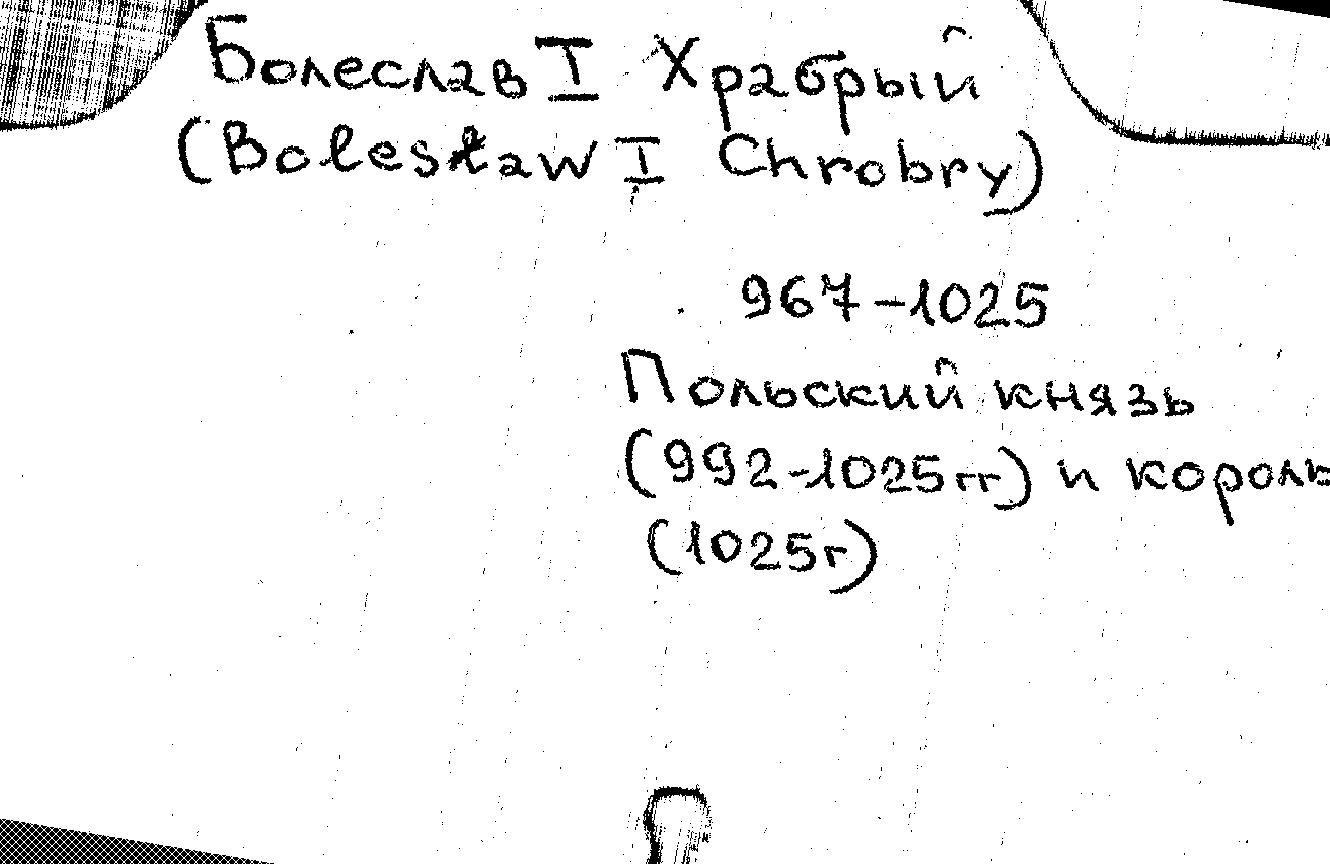 Болеслав I Храбрый
(Bolesław I Chrobry)
967-1025
Польский князь
(992-1025гг) и король
(1025г)